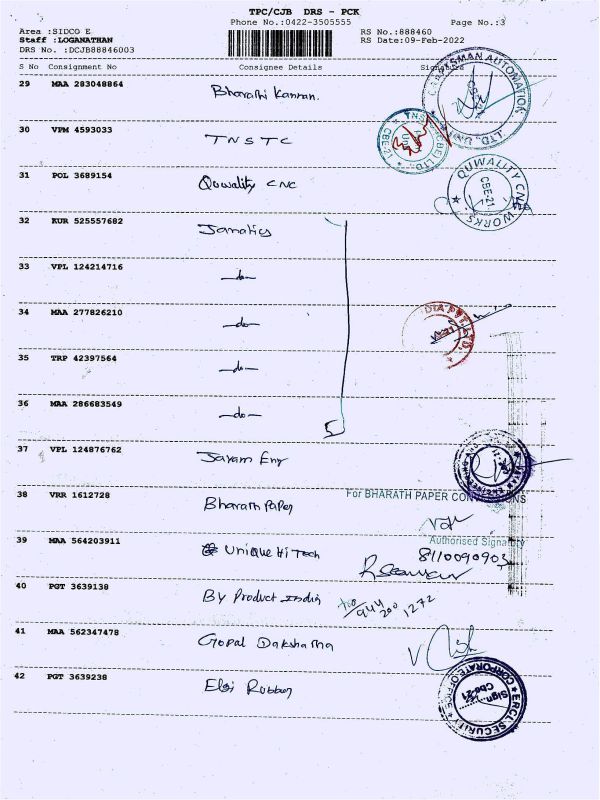 TPC/CJB DRS - PCK
Phone No.:0422-3505555 Page No.:3
Area :SIDCO E RS No.:888460
Staff :LOGANATHAN RS Date:09-Feb-2022
DRS No. :DCJB88846003
S No Consignment No Consignee Details Signature
29 MAA 283048864 Bharathi Kannan.
CRAFTSMAN AUTOMATION LTD. UNIT
30 VPM 4593033 TNSTC
CBE-21
31 POL 3689154 Quwality CNC
QUWALITY CNC WORKS CBE-21
32 KUR 525557682 Janatics
33 VPL 124214716 -do-
34 MAA 277826210 -do-
DIA PVT LTD.
35 TRP 42397564 -do-
36 MAA 286683549 -do-
5
37 VPL 124876762 Jayam Eng
38 VRR 1612728 Bharath Paper
For BHARATH PAPER
Authorised Signatory
39 MAA 564203911 Unique Hi Tech 8110090903
40 PGT 3639138 By Product India
944 200 1272
41 MAA 562347478 Gopal Daksharna
42 PGT 3639238 Elgi Rubber
ERCL SECURITY CORPORATE OFFICE
Sign...
Cbe-21